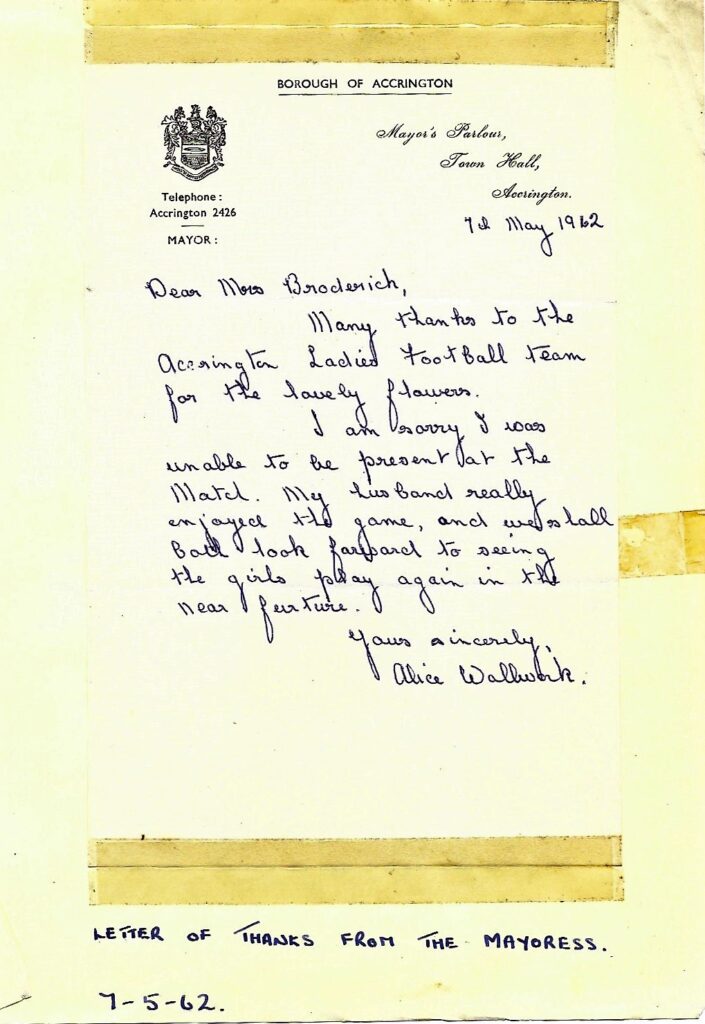 BOROUGH OF ACCRINGTON
Mayor's Parlour,
Town Hall,
Accrington.
Telephone :
Accrington 2426
MAYOR :
7th May 1962
Dear Mrs Broderich,
Many thanks to the
Accrington Ladies Football team
for the lovely flowers.
I am sorry I was
unable to be present at the
Match. My husband really
enjoyed the game, and we shall
both look forward to seeing
the girls play again in the
near furture.
Yours sincerely,
Alice Wallwork.
LETTER OF THANKS FROM THE MAYORESS.
7-5-62.